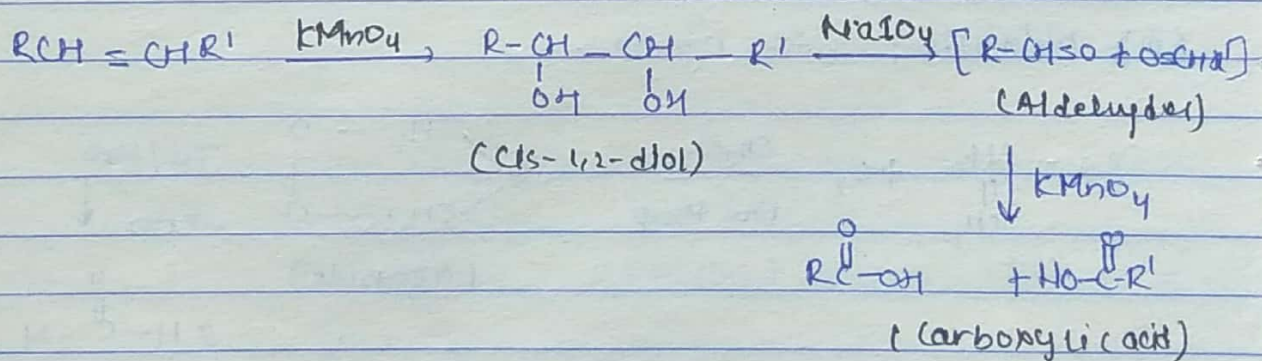 RCH = CHR' KMnO4 R-CH-CH-R' NaIO4 [R-CH=O + O=CHR']
OH OH (Aldehydes)
(Cis-1,2-diol) KMnO4
O O
RC-OH + HO-C-R'
(Carboxylic acid)